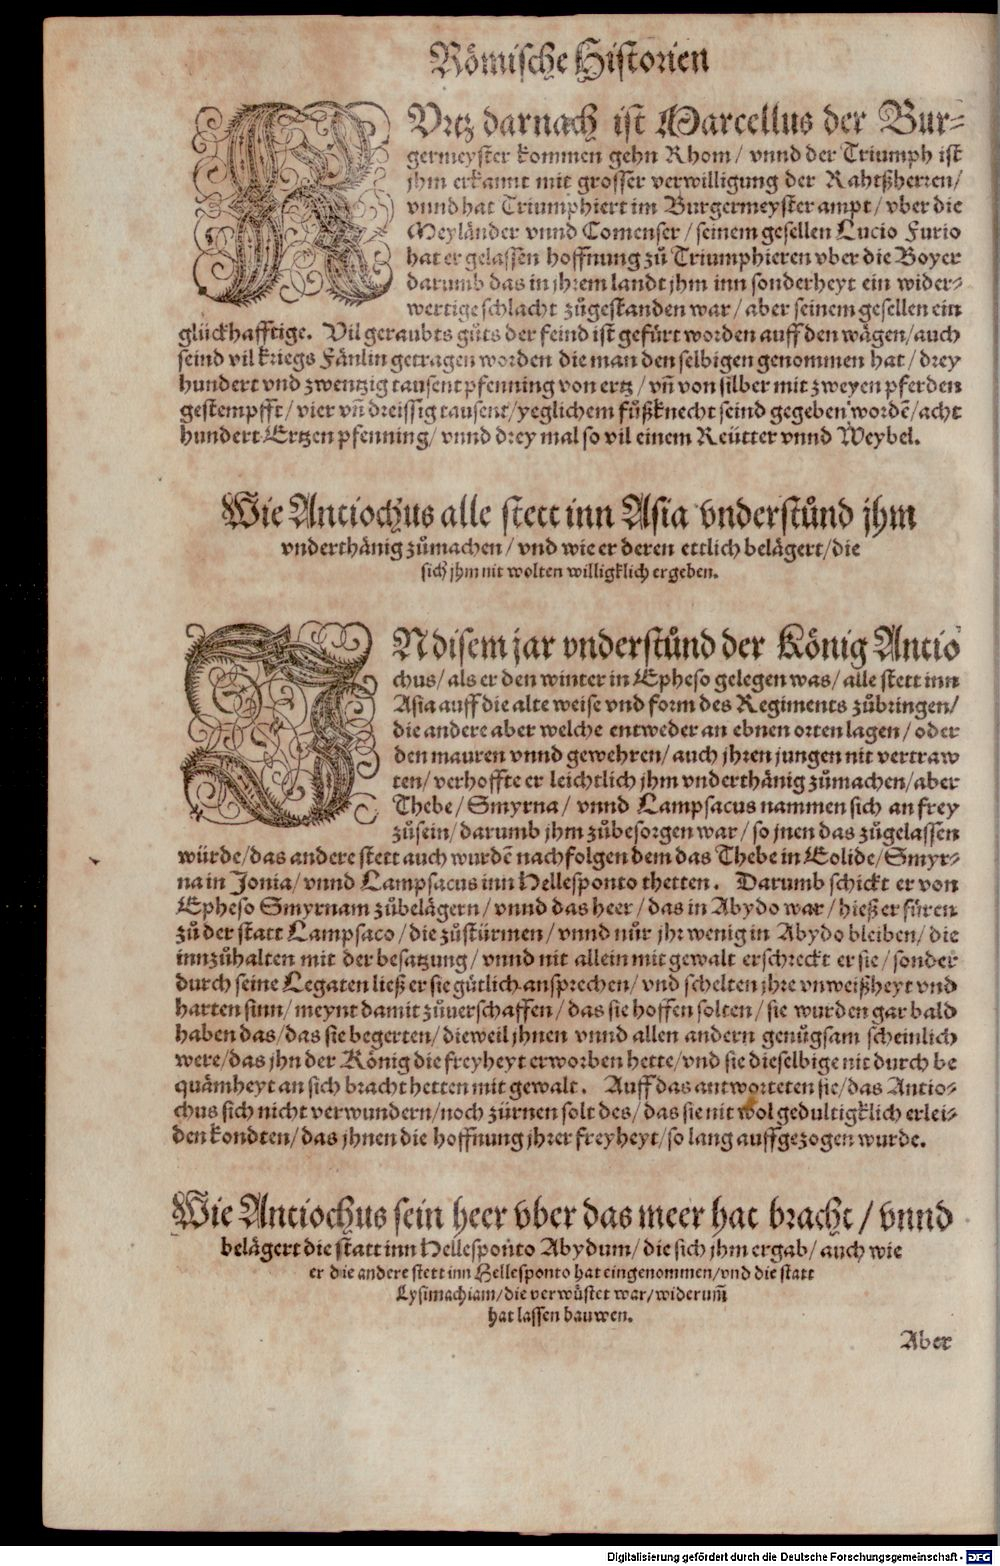 Römische Historien
KVrtz darnach ist Marcellus der Bur-
germeyster kommen gehn Rhom / vnnd der Triumph ist
jhm erkannt mit grosser verwilligung der Rahtßherren /
vnnd hat Triumphiert im Burgermeyster ampt / vber die
Meyländer vnnd Comenser / seinem gesellen Lucio Furio
hat er gelassen hoffnung zů Triumphieren vber die Boyer
darumb das in jhrem landt jhm inn sonderheyt ein wider-
wertige schlacht zůgestanden war / aber seinem gesellen ein
glückhafftige. Vil geraubts gůts der feind ist gefürt worden auff den wägen / auch
seind vil kriegs Fänlin getragen worden die man den selbigen genommen hat / drey
hundert vnd zwentzig tausent pfenning von ertz / vñ von silber mit zweyen pferden
gestempfft / vier vñ dreissig tausent / yeglichem fůßknecht seind gegeben wordẽ / acht
hundert Ertzen pfenning / vnnd drey mal so vil einem Reütter vnnd Weybel.
Wie Antiochus alle stett inn Asia vnderstůnd jhm
vnderthänig zůmachen / vnd wie er deren ettlich belägert / die
sich jhm nit wolten willigklich ergeben.
IN disem jar vnderstůnd der König Antio
chus / als er den winter in Epheso gelegen was / alle stett inn
Asia auff die alte weise vnd form des Regiments zůbringen /
die andere aber welche entweder an ebnen orten lagen / oder
den mauren vnnd gewehren / auch jhren jungen nit vertraw
ten / verhoffte er leichtlich jhm vnderthänig zůmachen / aber
Thebe / Smyrna / vnnd Lampsacus nammen sich an frey
zůsein / darumb jhm zůbesorgen war / so jnen das zůgelassen
würde / das andere stett auch wurdẽ nachfolgen dem das Thebe in Eolide / Smyr-
na in Jonia / vnnd Lampsacus inn Hellesponto thetten. Darumb schickt er von
Epheso Smyrnam zůbelägern / vnnd das heer / das in Abydo war / hieß er füren
zů der statt Lampsaco / die zůstürmen / vnnd nůr jhr wenig in Abydo bleiben / die
innzůhalten mit der besatzung / vnnd nit allein mit gewalt erschreckt er sie / sonder
durch seine Legaten ließ er sie gütlich ansprechen / vnd schelten jhre vnweißheyt vnd
harten sinn / meynt damit zůuerschaffen / das sie hoffen solten / sie wurden gar bald
haben das / das sie begerten / dieweil jhnen vnnd allen andern genůgsam scheinlich
were / das jhn der König die freyheyt erworben hette / vnd sie dieselbige nit durch be
quämheyt an sich bracht hetten mit gewalt. Auff das antworteten sie / das Antio-
chus sich nicht verwundern / noch zürnen solt des / das sie nit wol gedultigklich erlei-
den kondten / das jhnen die hoffnung jhrer freyheyt / so lang auffgezogen wurde.
Wie Antiochus sein heer vber das meer hat bracht / vnnd
belägert die statt inn Hellesponto Abydum / die sich jhm ergab / auch wie
er die andere stett inn Hellesponto hat eingenommen / vnd die statt
Lysimachiam / die verwüstet war / widerum̃
hat lassen bauwen.
Aber
Digitalisierung gefördert durch die Deutsche Forschungsgemeinschaft - DFG